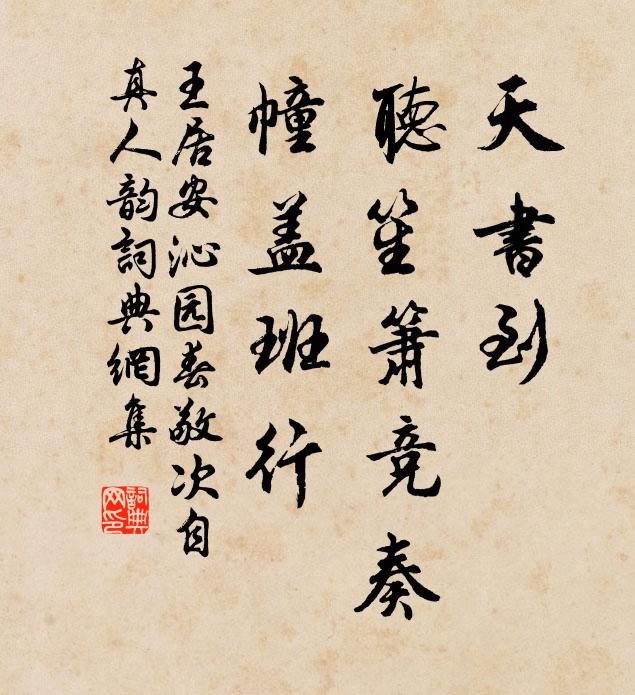 天書到
聽笙簫竞奏
幢盖班行
王居安沁园春敬次自
真人韵詞典網集
詞典网印